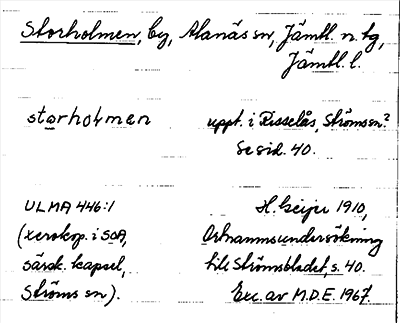 Storholmen, by, Alanäs sn, Jämtl. n. tg,
Jämtl. l.
storholmen
uppt. i Risselås, Ströms sn?
Se sid. 40.
ULMA 446:1
(xerokop. i SOA,
särsk. kapsel,
Ströms sn).
H. Geijer 1910,
Ortnamnsundersökning
till Strömsbladet, s. 40.
Exc. av M.D.E. 1967.